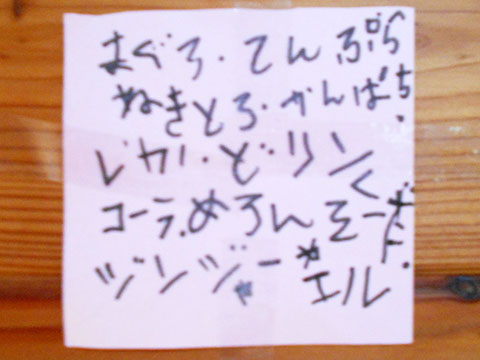 まぐろ・てんぷら
ねきとろ・かんぱち
どリンく
コーラ.めろんそーダ
ジンジャーエル